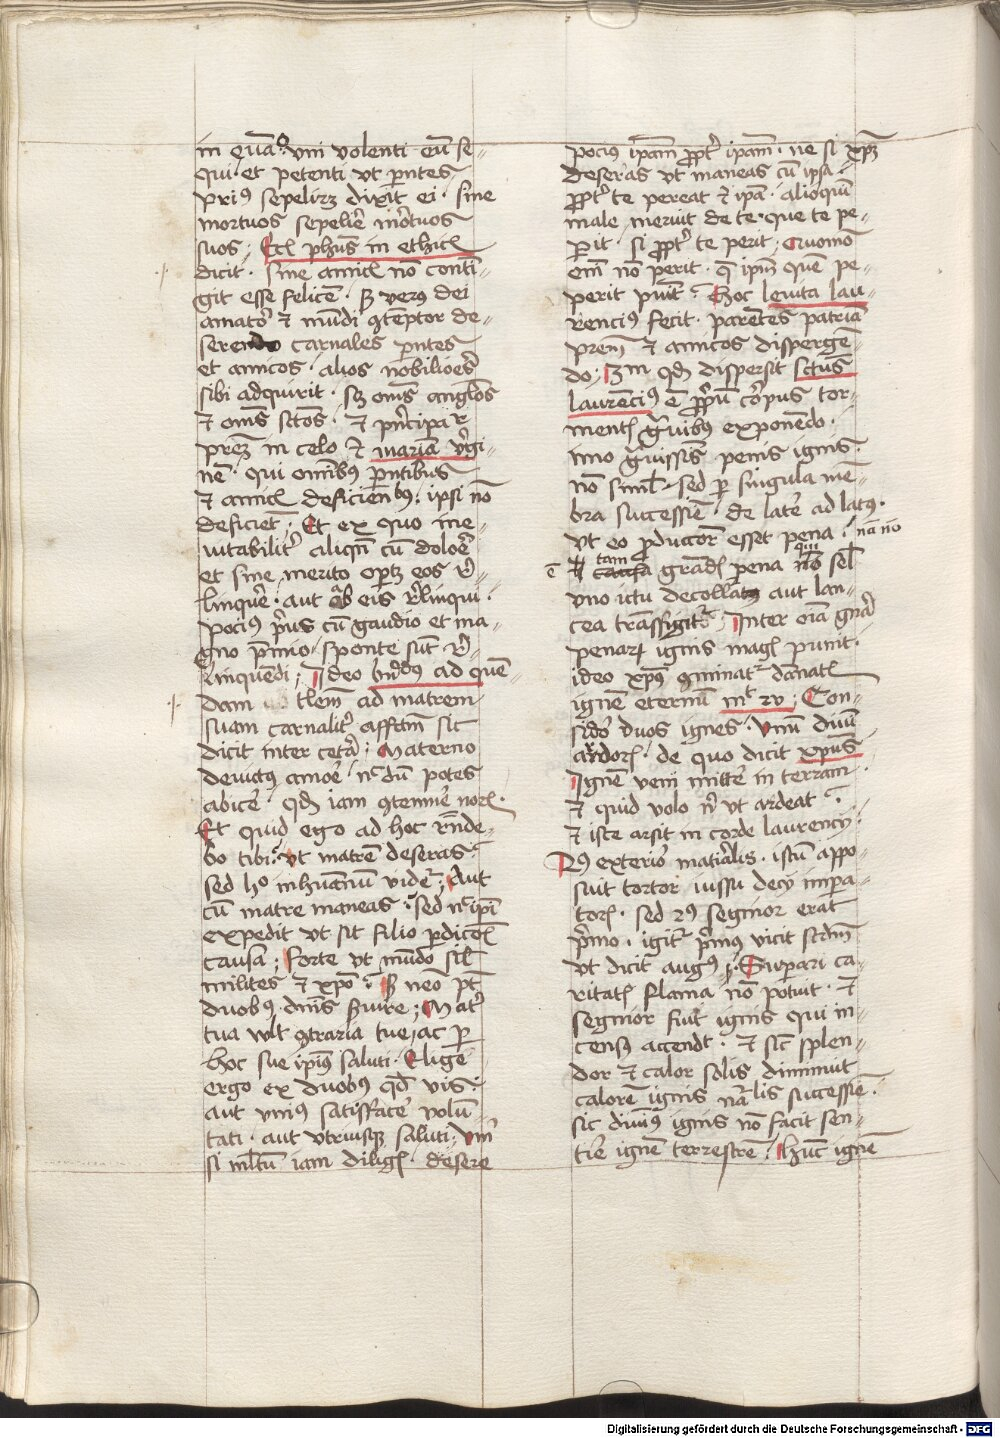 in eua͞ᵒ. vni volenti eū se-
qui et petenti vt pn̄tes
priꝰ sepelirꝫ dixit ei. sine
mortuos sepelir̄ mortuos
suos; Etꝭ ph̄us in ethicꝭ
dicit. sine amicꝭ nō conti-
git esse felicē. sꝫ verꝰ dei
amator et mūdi ꝯtēptor de-
serendo carnales pn̄tes
et amicos. alios nobiliores
sibi adquirit. sꝫ om̄s angl̄os
et om̄s sc̄tos. et pn̄cipar
prēꝫ in celo et mariā v̓gi-
nē. qui omībus pn̄tibus
et amicꝭ deficien̄bꝰ. ipsi nō
deficiēt. Et ex quo ine-
vitabilit̓ aliqn̄ cū dolore
et sine merito oportꝫ eos re-
linquere. aut ab eis relinqui.
pociꝰ priꝰ cū gaudio et ma-
gno p̄mio. sponte sūt re-
linquēdi; Ideo bn̄dꝰ ad quē-
dam tlem̄ ad matrem
suam carnalit̓ affc̄tm̄ sic
dicit inter cetera; Materno
deuictꝰ amore. nōdū potes
abicere. qd̄ iam ꝯtemnere norꝭ.
Et quid ego ad hoc rn̄de-
bo tibi. vt matrē deseras.
sed hᵒ inhumanū videtur; Aut
cū matre maneas. sed nec ip̄i
expedit vt sit filio perdicōis
causa; Forte vt mūdo siml̄
milites et xp̄o. sꝫ nemo pt̄
duobꝰ dn̄is seruire; Mater
tua vult ꝯtraria tue, ac per
hoc sue ipiꝰ saluti. Elige
ergo ex duobꝰ qd̄ vis.
aut vniꝰ satisfacere volū-
tati. aut vtriusqꝫ saluti; Vn̄
si ml̄tum iam diligꝭ. desere
pociꝰ ipam̄ propt̓ ipam̄. ne si xp̄m
deseras vt maneas cū ipsa.
propt̓ te pereat et ipa. alioquin
male meruit de te. que te pe-
perit. si propt̓ te perit; Quomō
em̄ nō perit. q̄ ipm̄ quē pe-
perit punit. Hoc leuita lau-
renciꝰ fecit. parentes patriā
prem̄ et amicos dispergē-
do; In qd̄ dispersit sctūs
laurēciꝰ ē propriū corpus tor-
mentꝭ grauibꝰ exponēdo.
ymo grauissis penis ignis.
nō siml̄. sed per singula mē-
bra successiue. de latere ad latꝰ.
vt eo productior esset pena. nā nō
ē tam grādꝭ pena qn̄ nō sel
vno ictu decollatꝰ aut lan-
cea transfigit̓; Inter oīa gn̄a
penarꝝ ignis magꝭ punit.
ideo xp̄us ꝯminatur damnatꝭ
ignē eternū mt̄ xv; Con-
sidero duos ignes. vnū diuīi
ardorꝭ. de quo dicit xp̄us
Ignē veni mittere in terram.
et quid volo nisi vt ardeat.
et iste arsit in corde laurencij.
2ꝰ exterior mat̓ialis. istū appo-
suit tortor iussu decij impera-
torꝭ. sed 2ꝰ segnior erat
primo. igit̓ primꝰ vicit scd̄m
vt dicit augꝰ; Superari ca-
ritatꝭ flama nō potuit. et
segnior fuit ignis qui in-
censꝰ accendit. et sic splen-
dor et calor solis diminuit
calorē ignis nāalis successiue.
sic diuinꝰ ignis nō facit sen-
tire ignē terrestrē; Hūc ignē
Digitalisierung gefördert durch die Deutsche Forschungsgemeinschaft - DFG